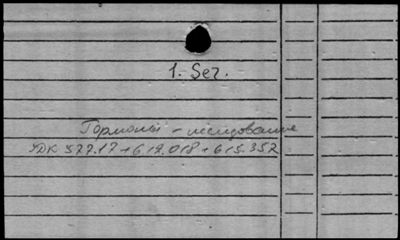 1. Ser.
Гормоны - исследование
УДК 577.17+612.018+615.352